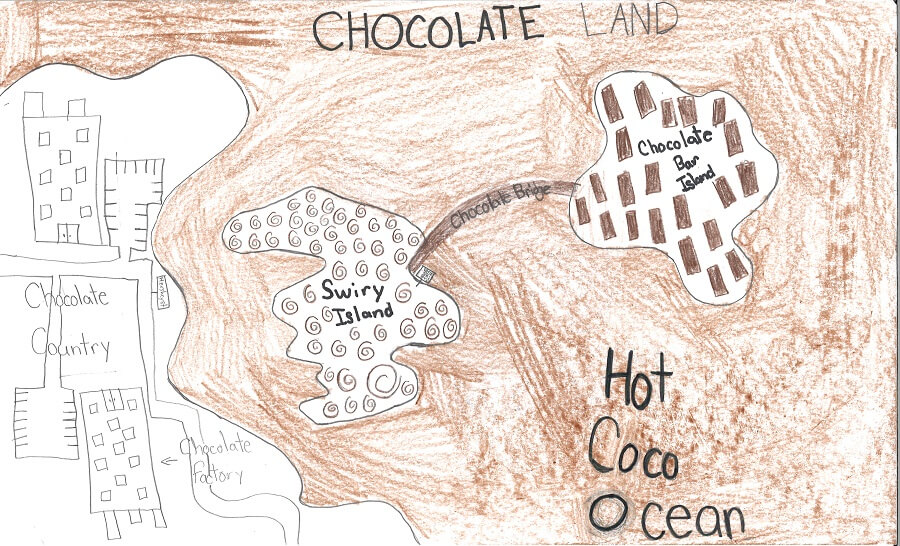 CHOCOLATE LAND
Chocolate
Bar
Island
Chocolate Bridge
Swiry
Island
Chocolate
Country
Chocolate
factory
Hot
Coco
Ocean